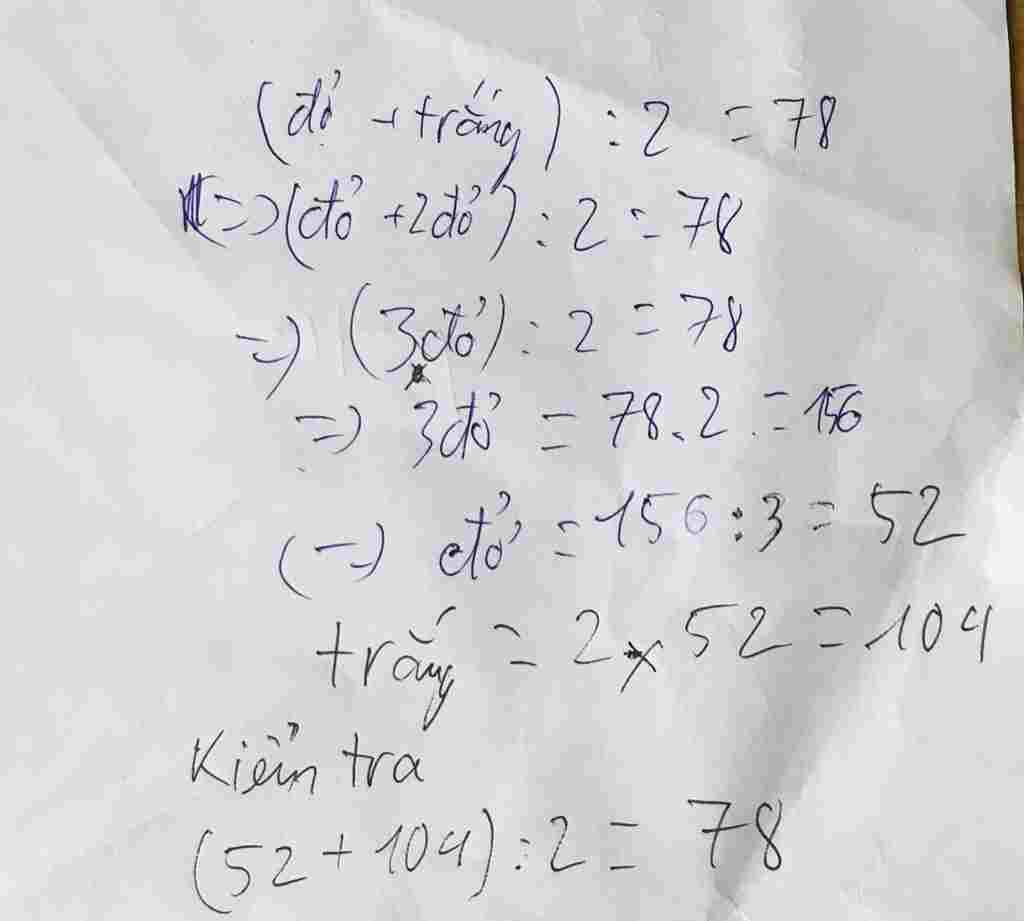 (đỏ + trắng) : 2 = 78
<=> (đỏ + 2đỏ) : 2 = 78
=> (3đỏ) : 2 = 78
=> 3đỏ = 78.2 = 156
(=) đỏ = 156 : 3 = 52
trắng = 2 x 52 = 104
Kiểm tra
(52 + 104) : 2 = 78